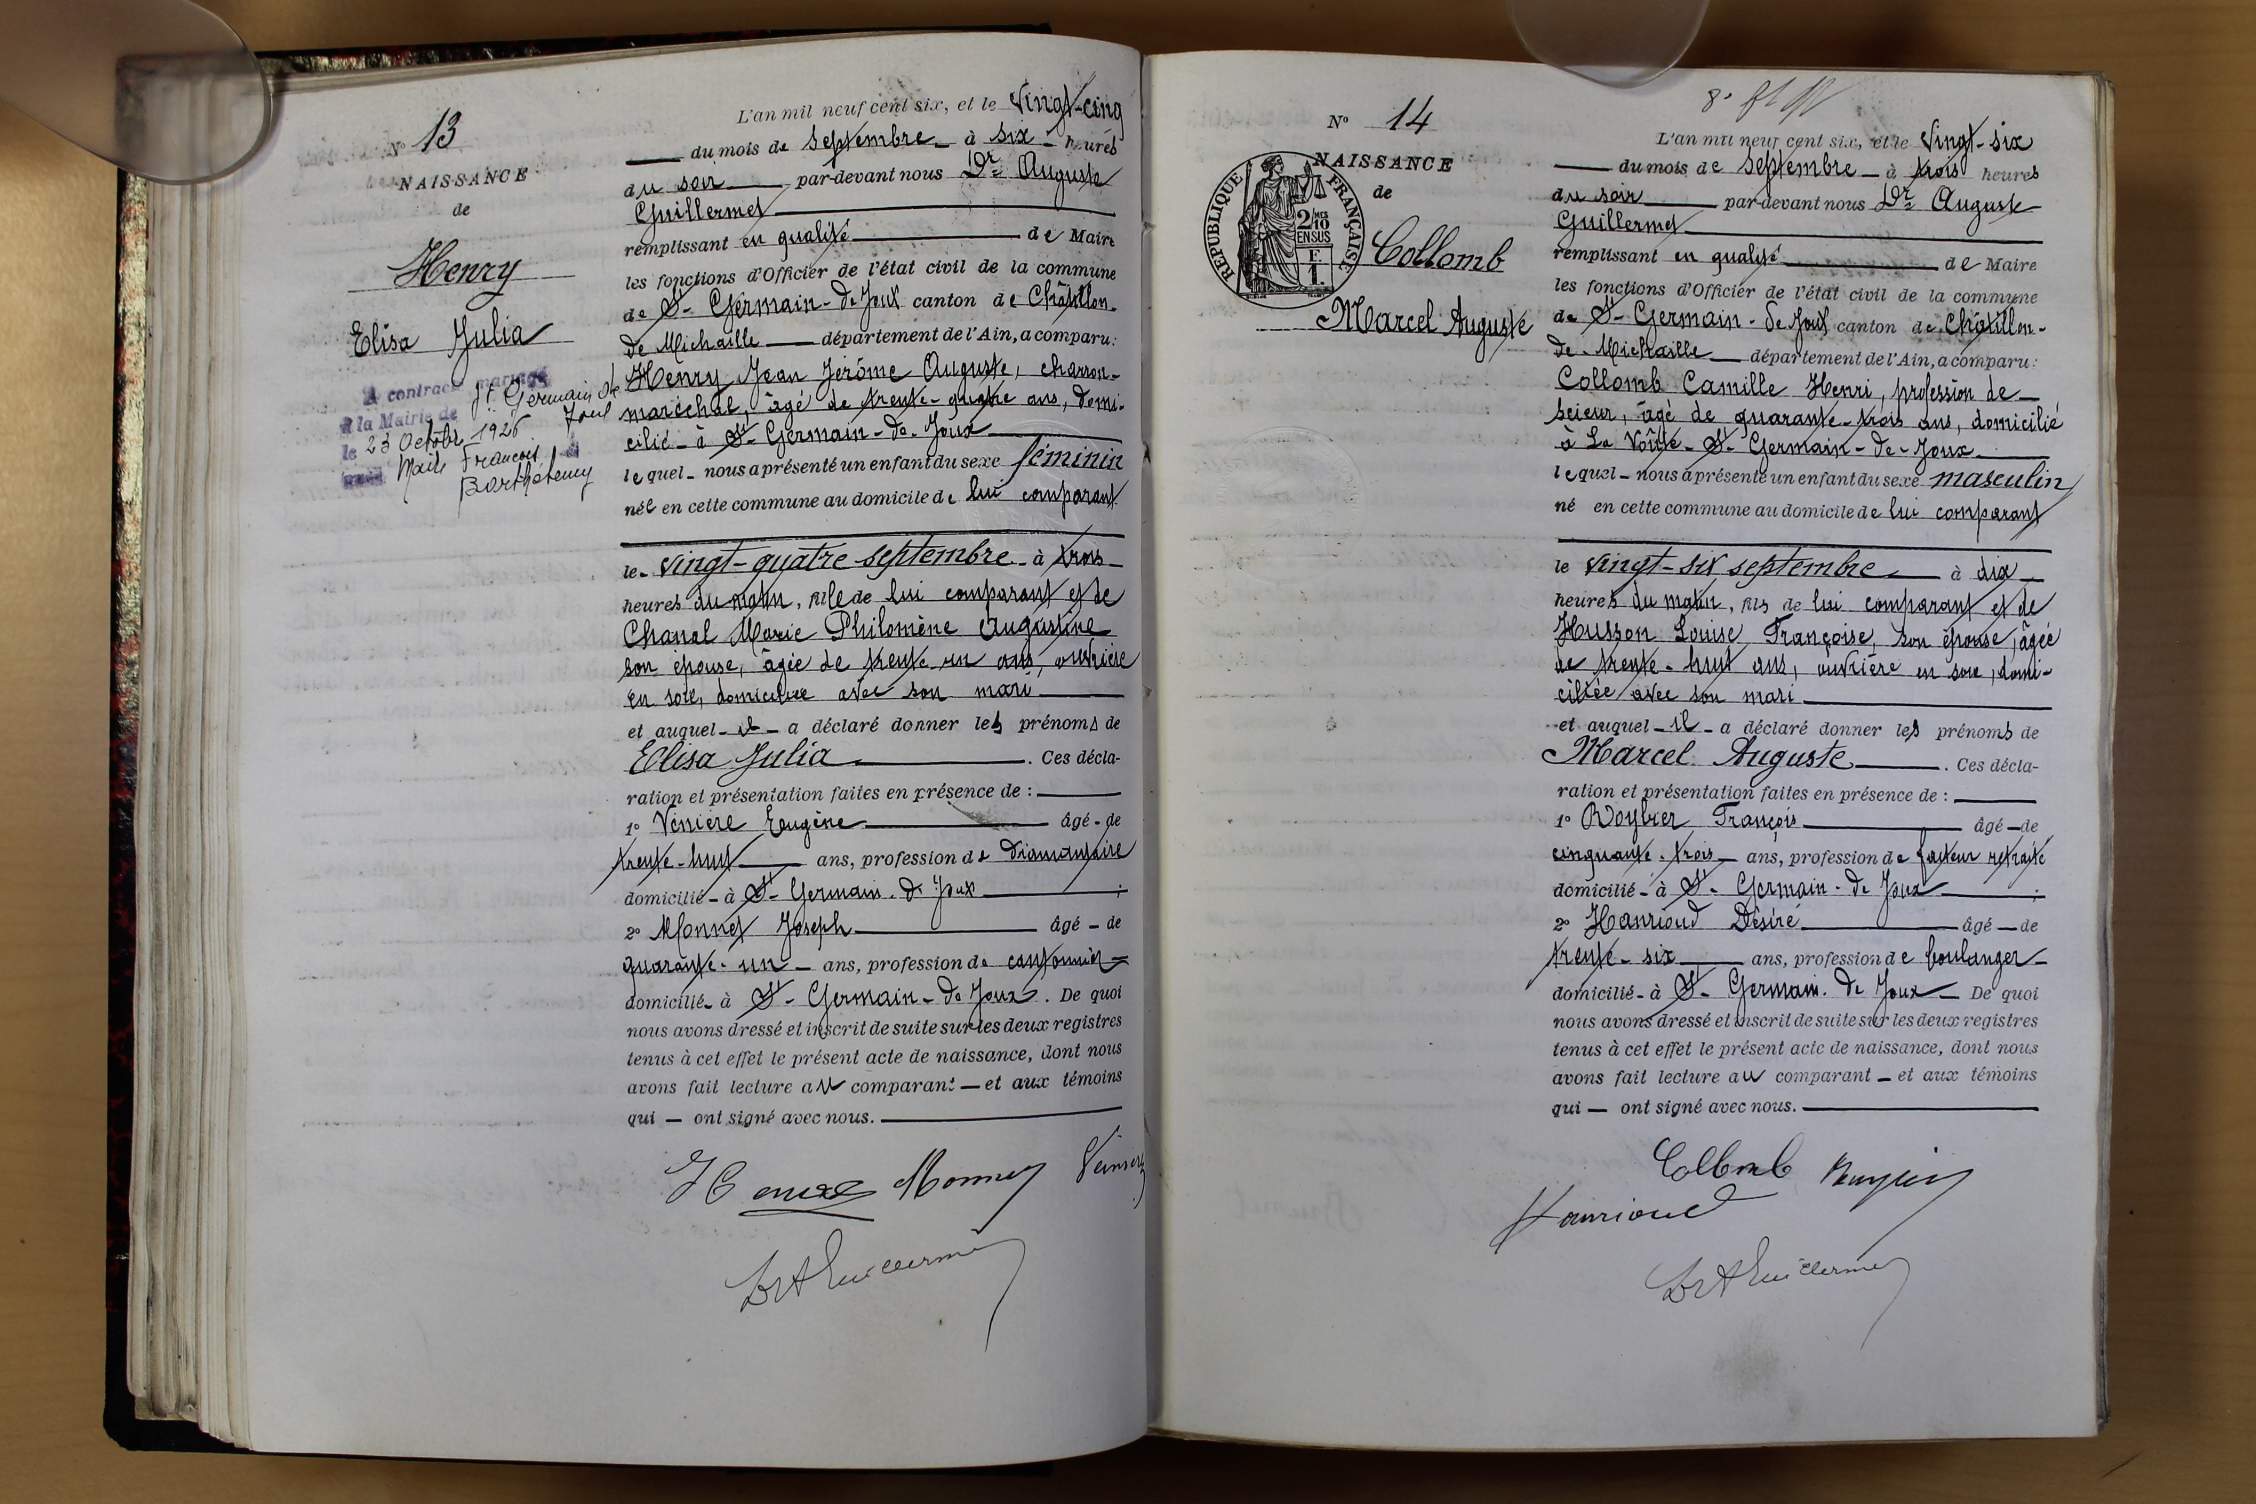 N° 13
NAISSANCE
de
Henry
Elisa Julia
A contracté mariage
à la Mairie de St Germain de
Joux
le 23 Octobre 1926
avec Maile François
Barthélemy
L'an mil neuf cent six, et le Vingt-cinq
du mois de septembre à six heures
du soir par-devant nous Dr Auguste
Guillermet
remplissant en qualité de Maire
les fonctions d'Officier de l'état civil de la commune
de St-Germain-de-Joux canton de Châtillon-
de Michaille département de l'Ain, a comparu:
Henry Jean Jérôme Auguste, charron-
maréchal, âgé de trente-quatre ans, domi-
cilié à St-Germain-de-Joux
lequel nous a présenté un enfant du sexe féminin
née en cette commune au domicile de lui comparant
le vingt-quatre septembre à trois
heures du matin, fille de lui comparant et de
Chanal Marie Philomène Augustine
son épouse, âgée de trente-un ans, ouvrière
en soie, domiciliée avec son mari
et auquel il a déclaré donner les prénoms de
Elisa Julia. Ces décla-
ration et présentation faites en présence de :
1° Vénière Eugène âgé de
trente-huit ans, profession de diamantaire
domicilié à St-Germain-de Joux ;
2° Monnet Joseph âgé de
quarante-un ans, profession de cantonnier
domicilié à St-Germain-de Joux. De quoi
nous avons dressé et inscrit de suite sur les deux registres
tenus à cet effet le présent acte de naissance, dont nous
avons fait lecture au comparant et aux témoins
qui ont signé avec nous.
Henry Monnet
Dr A Guillermet
N° 14
NAISSANCE
de
RÉPUBLIQUE FRANÇAISE
2/10 MES
EN SUS
F.
1.
Collomb
Marcel Auguste
L'an mil neuf cent six, et le Vingt-six
du mois de septembre à trois heures
du soir par-devant nous Dr Auguste
Guillermet
remplissant en qualité de Maire
les fonctions d'Officier de l'état civil de la commune
de St-Germain-de Joux canton de Châtillon-
de-Michaille département de l'Ain, a comparu:
Collomb Camille Henri, profession de
scieur, âgé de quarante-trois ans, domicilié
à La Voûte-St-Germain-de-Joux
lequel nous a présenté un enfant du sexe masculin
né en cette commune au domicile de lui comparant
le vingt-six septembre à dix
heures du matin, fils de lui comparant et de
Husson Louise Françoise, son épouse, âgée
de trente-huit ans, ouvrière en soie, domi-
ciliée avec son mari
et auquel il a déclaré donner les prénoms de
Marcel Auguste. Ces décla-
ration et présentation faites en présence de :
1° Roybier François âgé de
cinquante-trois ans, profession de facteur retraité
domicilié à St-Germain-de Joux ;
2° Hanrioud Désiré âgé de
trente-six ans, profession de boulanger
domicilié à St-Germain-de Joux De quoi
nous avons dressé et inscrit de suite sur les deux registres
tenus à cet effet le présent acte de naissance, dont nous
avons fait lecture au comparant et aux témoins
qui ont signé avec nous.
Collomb
Hanrioud
Dr A Guillermet